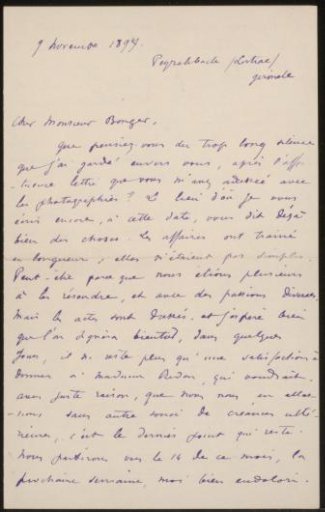 9 novembre 1897.
Peyrelebade (Listrac)
gironde
Cher Monsieur Bonger,
Que pensez-vous du trop long silence
que j'ai gardé envers vous, après
lettre que vous m'avez adressé avec
les photographies ? Le lieu d'où je vous
écris encore, à cette date, vous dit déjà
bien des choses. Les affaires ont trainé
en longueur ; elles n'étaient pas simples.
Peut-être parce que nous étions plusieurs
à les résoudre, et avec des passions diverses.
Mais les actes sont dressés, et j'espère bien
que l'on signera bientôt, dans quelques
jours, il ne reste plus qu'une satisfaction à
donner à madame Redon, qui voudrait
avec juste raison, que nous nous en allions
nous sans autre souci de créances ulté-
rieures, c'est le dernier point qui reste.
Nous partirons vers le 14 de ce mois, la
prochaine semaine, moi bien endolori.